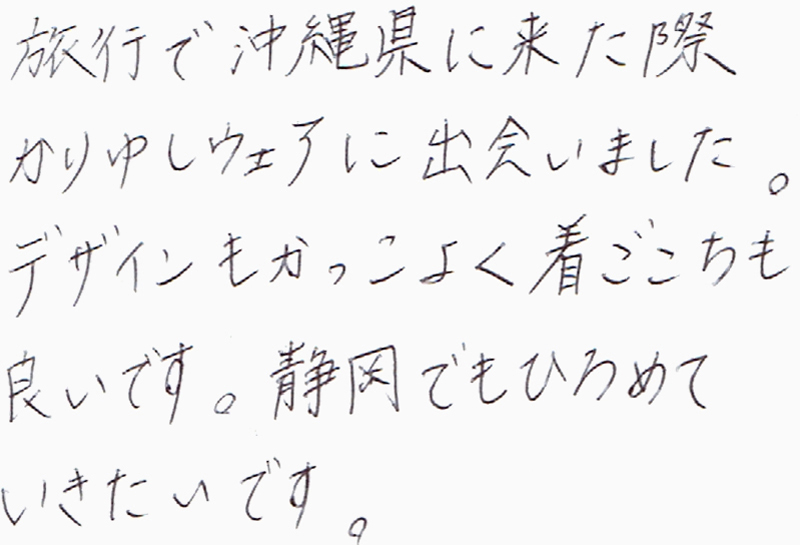 旅行で沖縄県に来た際
かりゆしウェアに出会いました。
デザインもかっこよく着ごこちも
良いです。静岡でもひろめて
いきたいです。